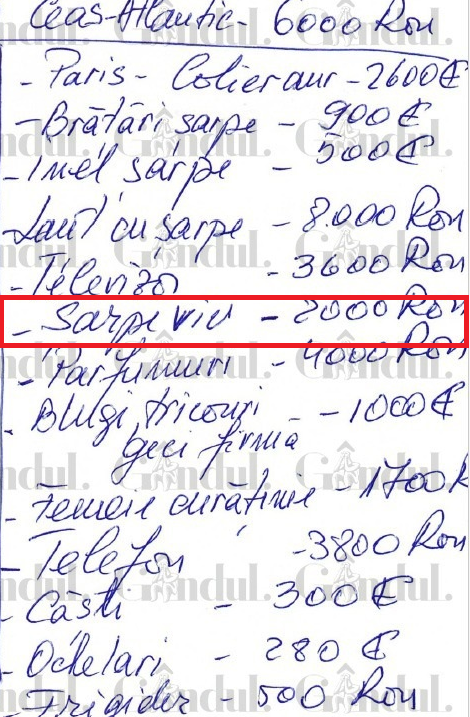 Ceas-Atlantic- 6000 Ron
- Paris - Colier aur - 2600 €
- Brătări sarpe - 900 €
- Inel sarpe - 500 €
- Lant cu sarpe - 8.000 Ron
- Televizor - 3600 Ron
- Sarpe viu - 2000 Ron
- Parfumuri - 4000 Ron
- Blugi tricouri - - 1000 €
geci firma
- Femeie curătenie - 1700 R
- Telefon - 3800 Ron
- Căsti - 300 €
- Ochelari - 280 €
- Frigider - 500 Ron
Gândul.